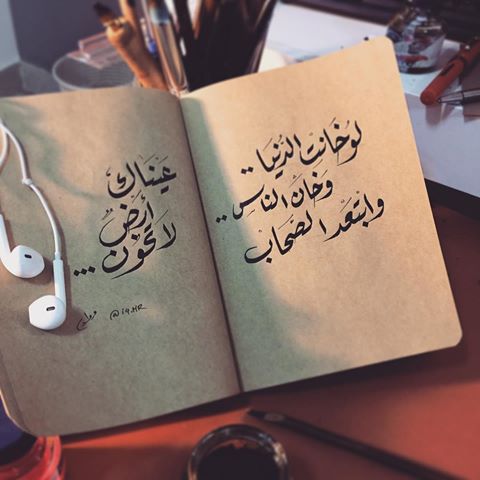 لَوْ خَانت الدّنيَا..
وَخَانَ الناس..
وابتعَد الصّحَاب
عَينَاكِ
أرضٌ
لا تَخُون...
@i9.HR